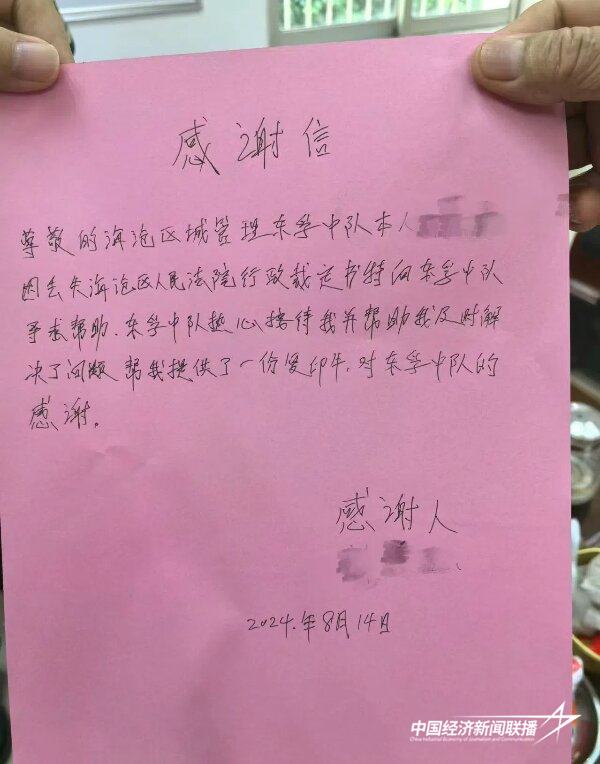 感谢信
尊敬的海沧区城管理东孚中队本人
因丢失海沧区人民法院行政裁定书特向东孚中队
寻求帮助、东孚中队热心接待我并帮助我及时解
决了问题帮我提供了一份复印件,对东孚中队的
感谢。
感谢人
2024.年8月14日
中国经济新闻联播
China Industrial Economy of Journalism and Communication